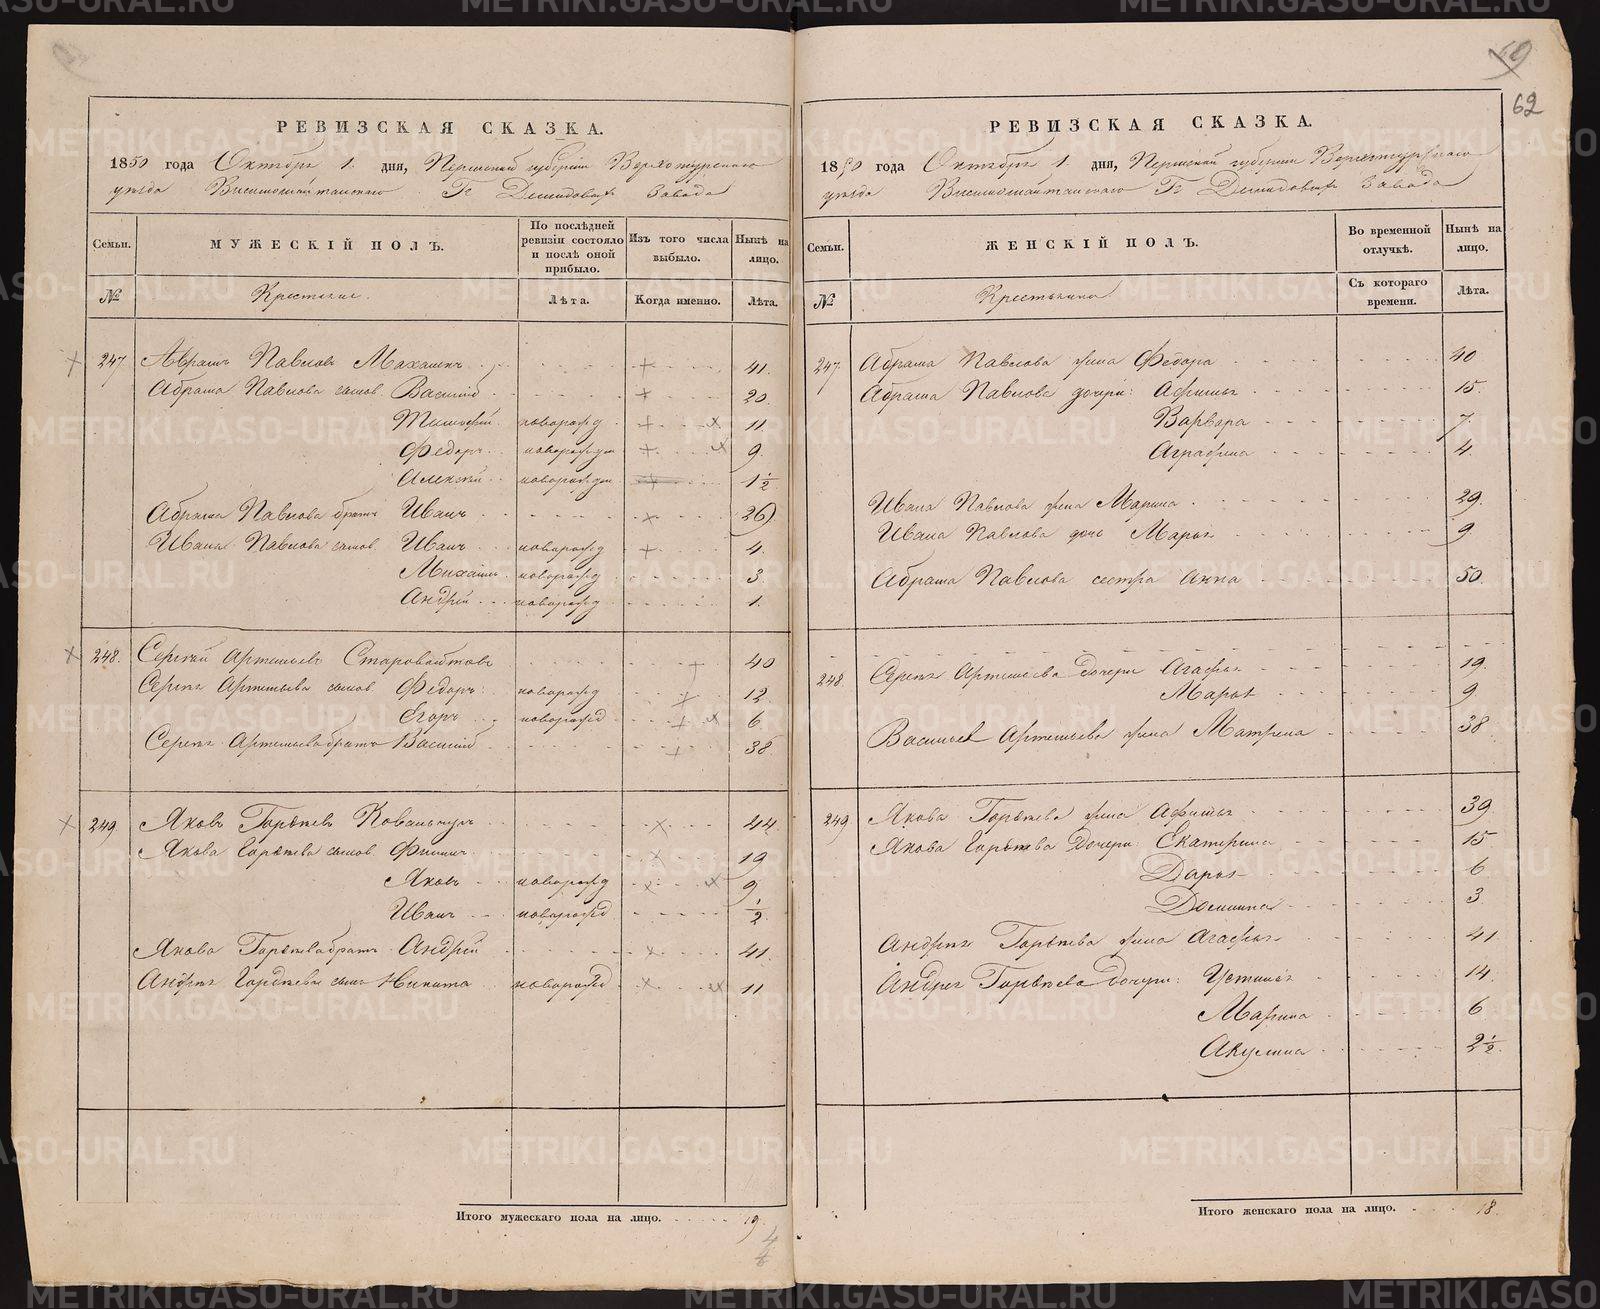 62
РЕВИЗСКАЯ СКАЗКА.
1850 года Октября 1. дня, Пермской губернии Верхотурскаго
уезда Висимошайтанскаго Гг Демидовых завода
Семьи. МУЖЕСКІЙ ПОЛЪ. По послѣдней ревизіи состояло и послѣ оной прибыло. Изъ того числа выбыло. Нынѣ на лицо.
№ Крестьяне. Лѣта. Когда именно. Лѣта.
247. Абрамъ Павловъ 41.
Абрама Павлова сынов. Василій 20
Тимофей новорожд 11
Федоръ новорожден 9.
Алексѣй новорожден 1½
Абрама Павлова братъ Иванъ 26
Ивана Павлова сынов. Иванъ новорожд 4.
Михаилъ новорожд 3
Андрей новорожд 1.
248. Сергѣй Артемьевъ 40
Сергѣя Артемьева сынов. Федоръ новорожд 12
Егоръ новорожд 6
Сергѣя Артемьева братъ Василій 38
249 Яковъ Гордѣевъ 44
Якова Гордѣева сынов. Филипъ 19
Яковъ новорожд 9
Иванъ новорожд ½
Якова Гордѣева братъ Андрей 41.
Андрея Гордѣева сынъ Никита новорожд 11
Итого мужескаго пола на лицо. 19.
РЕВИЗСКАЯ СКАЗКА.
1850 года Октября 1. дня, Пермской губернии Верхотурскаго
уезда Висимошайтанскаго Гг Демидовых завода
Семьи. ЖЕНСКІЙ ПОЛЪ. Во временной отлучкѣ. Нынѣ на лицо.
№ Крестьянина Съ котораго времени. Лѣта.
247. Абрама Павлова жена Федора 40
Абрама Павлова дочери: Афимья 15.
Варвара 7
Аграфена 4.
Ивана Павлова жена Марина 29.
Ивана Павлова дочь Марья 9.
Абрама Павлова сестра Анна 50.
248. Сергѣя Артемьева дочери Агафья 19.
Марья 9
Василья Артемьева жена Матрена 38
249 Якова Гордѣева жена Афимья 39
Якова Гордѣева дочери: Екатерина 15
Дарья 6
Домнина 3
Андрея Гордѣева жена Агафья 41
Андрея Гордѣева дочери: Устинья 14.
Марина 6
Акулина 2½.
Итого женскаго пола на лицо. 18.
METRIKI.GASO-URAL.RU